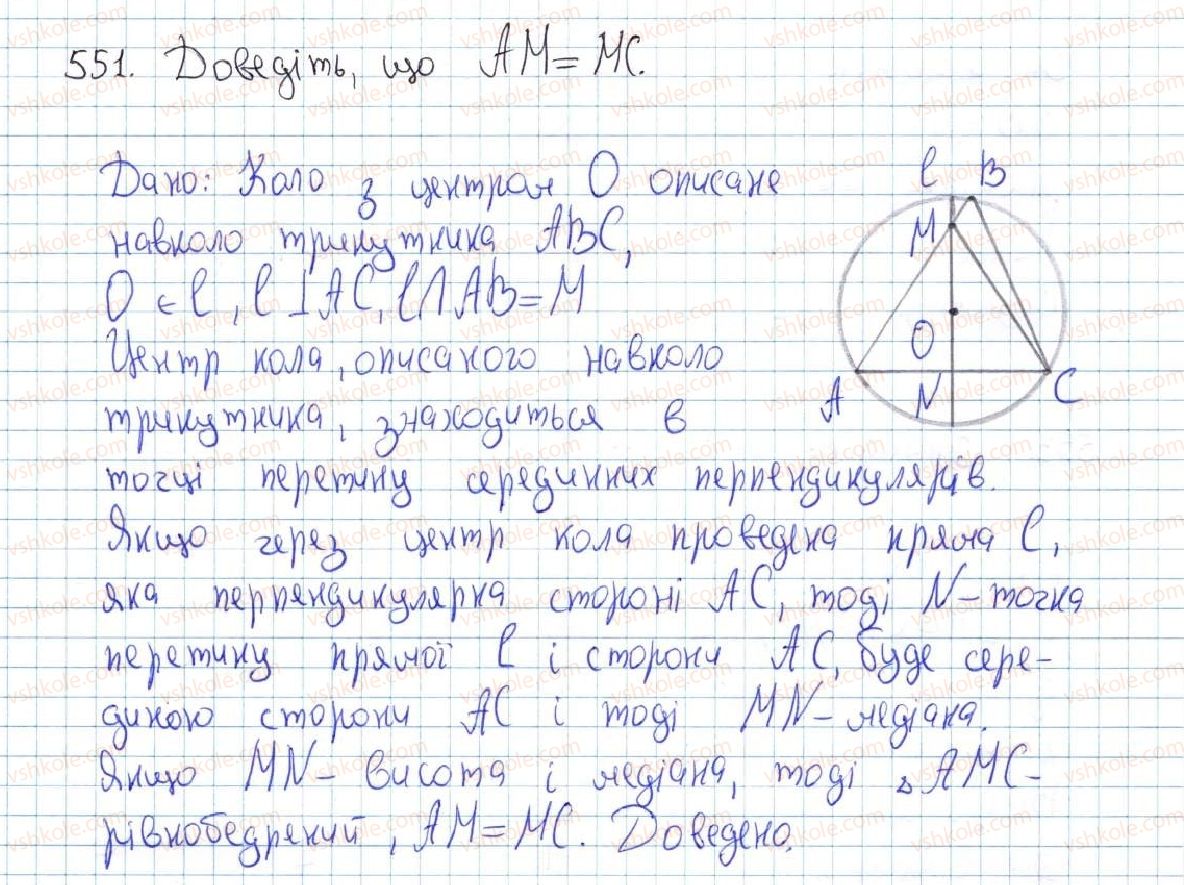 551. Доведіть, що AM = MC.
Дано: Коло з центром O описане
навколо трикутника ABC,
O ∈ l, l ⊥ AC, l ∩ AB = M
Центр кола, описаного навколо
трикутника, знаходиться в
точці перетину серединних перпендикулярів.
Якщо через центр кола проведена пряма l,
яка перпендикулярна стороні AC, тоді N – точка
перетину прямої l і сторони AC, буде сере-
диною сторони AC і тоді MN – медіана.
Якщо MN – висота і медіана, тоді △ AMC –
рівнобедрений, AM = MC. Доведено.
l B
M
O
A N C
vshkole.com